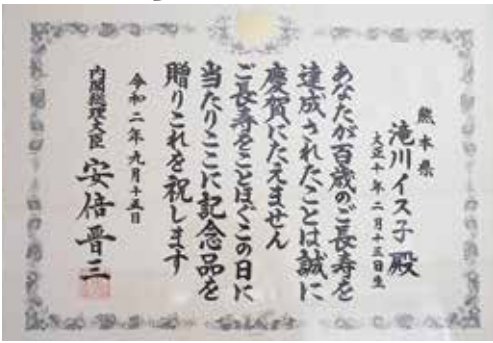 熊本県
滝川イス子殿
大正十年二月十三日生
あなたが百歳のご長寿を
達成されたことは誠に
慶賀にたえません
ご長寿をことほぐこの日に
当たりここに記念品を
贈りこれを祝します
令和二年九月十五日
内閣総理大臣 安倍晋三